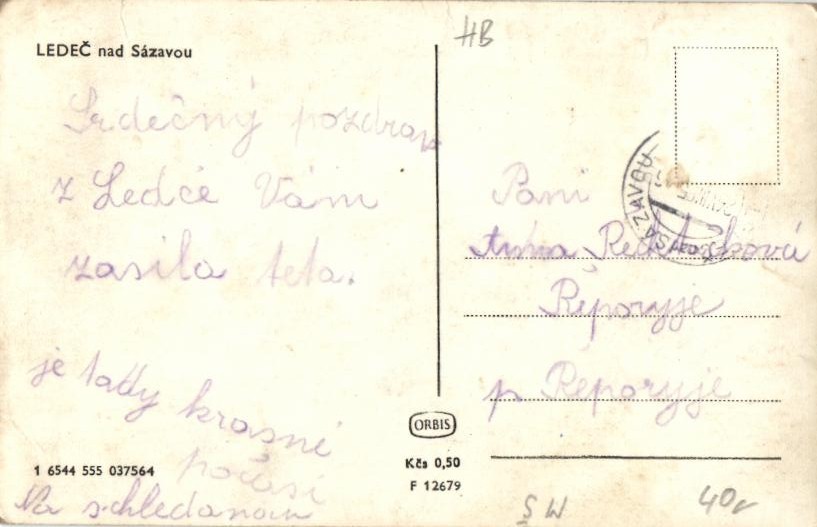 LEDEČ nad Sázavou
HB
Srdečný pozdrav
z Ledče Vám
zasíla teta.
je tady krasné
počasí
Na schledanou
1 6544 555 037564
ORBIS
Kčs 0,50
F 12679
SÁZAVOU
Paní
Řeporyje
p Řeporyje
Š W
40,-